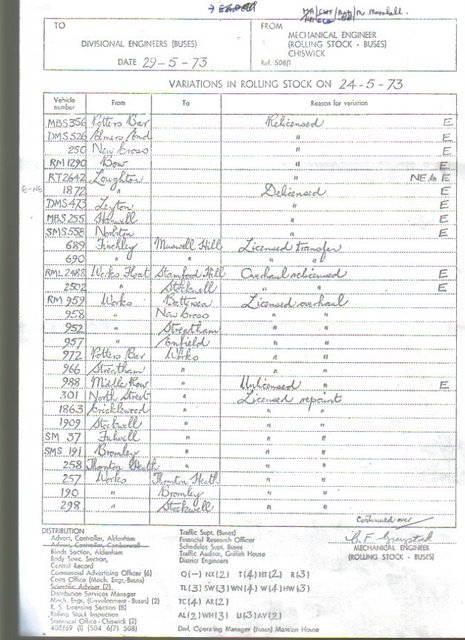 TO
DIVISIONAL ENGINEERS (BUSES)
DATE 29-5-73
FROM
MECHANICAL ENGINEER
(ROLLING STOCK - BUSES)
CHISWICK
Ref. 508/1
VARIATIONS IN ROLLING STOCK ON 24-5-73
Vehicle number From To Reason for variation
MBS 356 Potters Bar Relicensed E
DMS 526 Elmers End " E
250 New Cross " E
RM 1290 Bow " E
RT 2642 Loughton " NEA E
1872 " Delicensed E
DMS 473 Leyton " E
MBS 255 Hanwell " E
SMS 558 Norbiton " E
689 Finchley Muswell Hill Licensed transfer
690 " " " "
RML 2488 Works Float Stamford Hill Overhaul relicensed E
2502 " Stockwell " " E
RM 959 Works Battersea Licensed overhaul
958 " New Cross " "
952 " Streatham " "
957 " Enfield " "
972 Potters Bar Works " "
966 Streatham " " "
988 Middle Row " Unlicensed " E
301 North Street " Licensed repaint
1863 Cricklewood " " "
1909 Stockwell " " "
SM 37 Fulwell " " "
SMS 191 Bromley " " "
258 Thornton Heath " " "
257 Works Thornton Heath " "
190 " Bromley " "
298 " Stockwell " "
continued over
MECHANICAL ENGINEER
(ROLLING STOCK - BUSES)
DISTRIBUTION
Advert, Controller, Aldenham
Advert, Controller, Camberwell
Blinds Section, Aldenham
Body Insp. Section,
Central Record
Commercial Advertising Officer (6)
Costs Office (Mech. Engr. Buses)
Scientific Adviser (2)
Distribution Services Manager
Mech. Engr. (Development - Buses) (2)
R. S. Licensing Section (8)
Rolling Stock Inspection
Statistical Office - Chiswick (2)
Traffic Supt. (Buses)
Financial Research Officer
Schedules Supt. Buses
Traffic Audit, Griffith House
District Engineers
Q(-) NX(2) T(4) HT(2) R(3)
TL(3) SW(3) WN(4) W(4) HW(3)
TC(4) AR(2)
AL(2) WH(3) U(3) AV(2)
Divl. Operating Manager (Buses) Mansion House